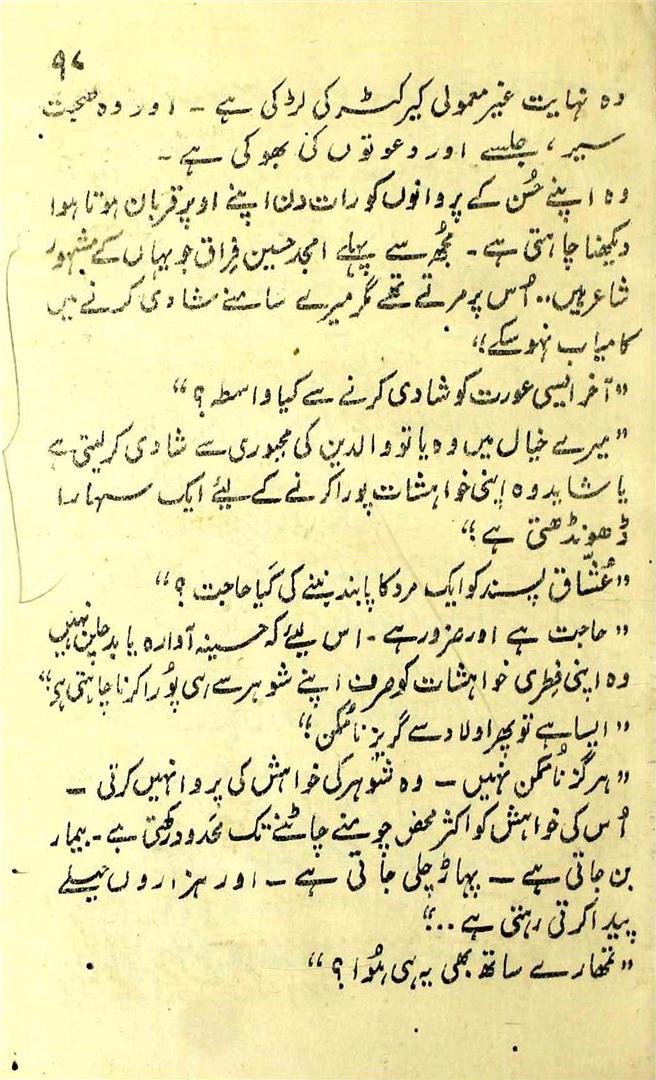 ۹۸
وہ نہایت غیر معمولی کیرکٹر کی لڑکی ہے ۔ اور وہ صحبت
سیر ، جلسے اور دعوتوں کی بھوکی ہے ۔
وہ اپنے حُسن کے پروانوں کو رات دن اپنے اوپر قربان ہوتا ہوا
دیکھنا چاہتی ہے ۔ مجھ سے پہلے امجد حسین فِراق جو یہاں کے مشہور
شاعر ہیں.. اُس پر مرتے تھے مگر میرے سامنے شادی کرنے میں
کامیاب نہو سکے؛“
”آخر ایسی عورت کو شادی کرنے سے کیا واسطہ ؟“
”میرے خیال میں وہ یا تو والدین کی مجبوری سے شادی کر لیتی ہے
یا شاید وہ اپنی خواہشات پورا کرنے کے لیئے ایک سہارا
ڈھونڈھتی ہے؛“
”عُشّاق پسند کو ایک مرد کا پابند بننے کی کَیا حاجت ؟“
”حاجت ہے اور ضرور ہے ۔ اس لیئے کہ حسینہ آوارہ یا بدچلن نہیں
وہ اپنی فِطری خواہشات کو صرف اپنے شوہر سے ہی پُورا کرنا چاہتی ہی“
”ایسا ہے تو پھر اولاد سے گریز نا مُمکن؛“
”ہرگز نا مُمکن نہیں ۔ وہ شوہر کی خواہش کی پروا نہیں کرتی ۔
اُس کی خواہش کو اکثر محض چومنے چاٹنے تک محَدود رکھتی ہے ۔ بیمار
بن جاتی ہے ۔ پہاڑ چلی جاتی ہے ۔ اور ہزاروں حیلے
پیدا کرتی رہتی ہے ..؛“
”تمھارے ساتھ بھی یہ ہی ہُوا ؟“